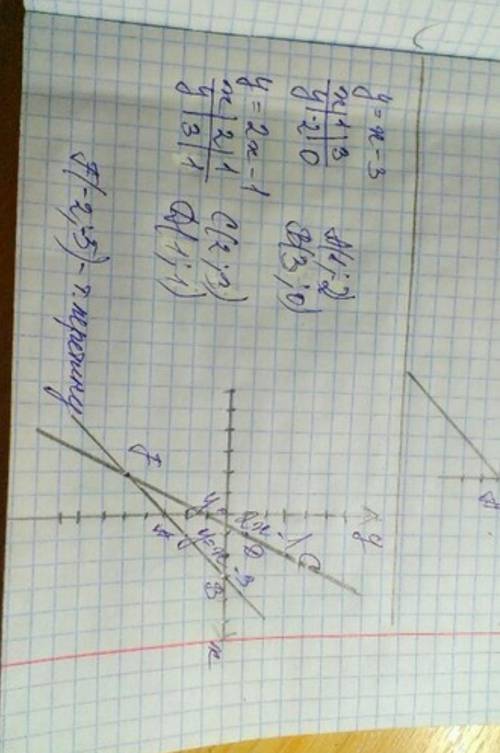 y = x - 3
x | 1 | 3
y | -2 | 0
A(1; -2)
B(3; 0)
y = 2x - 1
x | 2 | 1
y | 3 | 1
C(2; 3)
D(1; 1)
F(-2; -5) - т. перетину
y
x
y = 2x - 1
y = x - 3
A
B
C
D
F